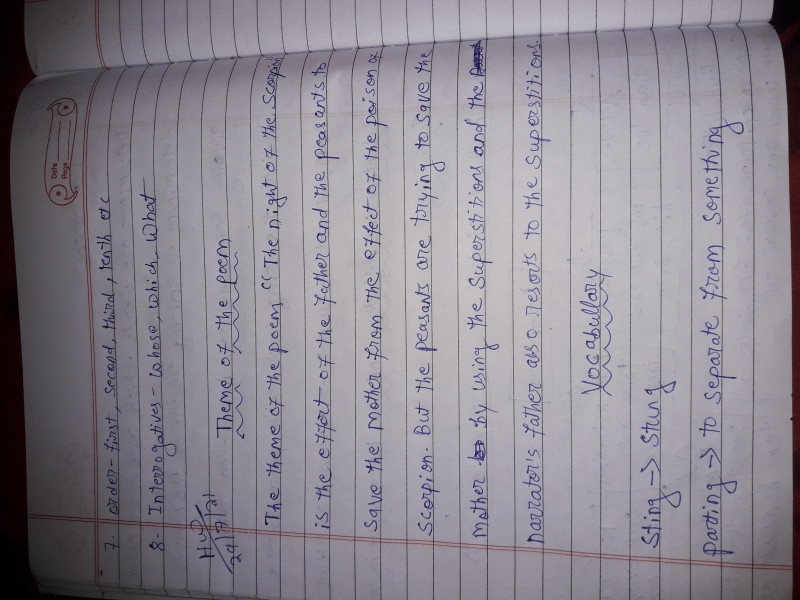 Date
Page
7. order - first, second, third, tenth etc
8. Interrogatives - whose, which, what
H.W
29/7/21
Theme of the poem
The theme of the poem "The night of the Scorpion
is the effort of the father and the peasants to
save the mother from the effect of the poison of
scorpion. But the peasants are trying to save the
mother by using the superstitions and the
narrator's father also resorts to the superstitions.
Vocabullary
Sting -> Stung
parting -> to separate from something